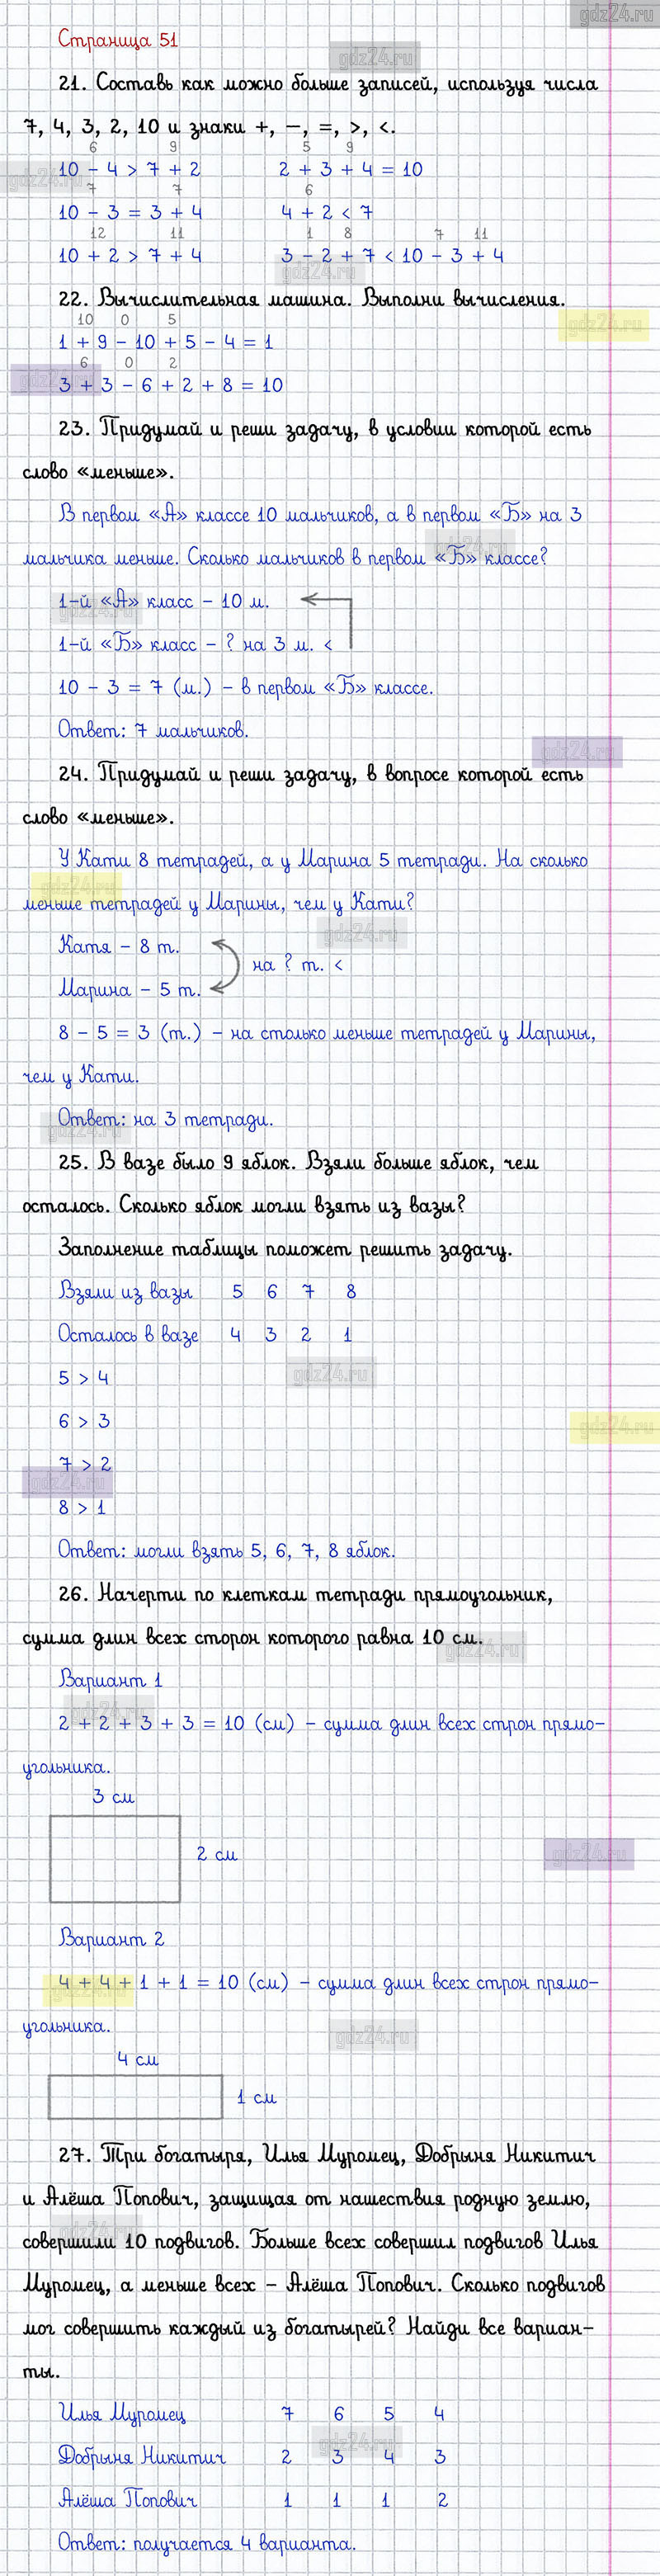 gdz24.ru
Страница 51
gdz24.ru
21. Составь как можно больше записей, используя числа
7, 4, 3, 2, 10 и знаки +, −, =, >, <.
6 9 5 9
10 − 4 > 7 + 2 2 + 3 + 4 = 10
gdz24.ru
7 7 6
10 − 3 = 3 + 4 4 + 2 < 7
12 11 1 8 7 11
10 + 2 > 7 + 4 3 − 2 + 7 < 10 − 3 + 4
gdz24.ru
22. Вычислительная машина. Выполни вычисления.
10 0 5
gdz24.ru
1 + 9 − 10 + 5 − 4 = 1
6 0 2
gdz24.ru
3 + 3 − 6 + 2 + 8 = 10
23. Придумай и реши задачу, в условии которой есть
слово «меньше».
В первом «А» классе 10 мальчиков, а в первом «Б» на 3
gdz24.ru
мальчика меньше. Сколько мальчиков в первом «Б» классе?
1-й «А» класс − 10 м.
gdz24.ru
1-й «Б» класс − ? на 3 м. <
10 − 3 = 7 (м.) − в первом «Б» классе.
Ответ: 7 мальчиков.
gdz24.ru
24. Придумай и реши задачу, в вопросе которой есть
слово «меньше».
У Кати 8 тетрадей, а у Марина 5 тетради. На сколько
gdz24.ru
меньше тетрадей у Марины, чем у Кати?
gdz24.ru
Катя − 8 т.
на ? т. <
Марина − 5 т.
8 − 5 = 3 (т.) − на столько меньше тетрадей у Марины,
чем у Кати.
Ответ: на 3 тетради.
gdz24.ru
25. В вазе было 9 яблок. Взяли больше яблок, чем
осталось. Сколько яблок могли взять из вазы?
Заполнение таблицы поможет решить задачу.
Взяли из вазы 5 6 7 8
Осталось в вазе 4 3 2 1
gdz24.ru
5 > 4
6 > 3
gdz24.ru
7 > 2
gdz24.ru
8 > 1
Ответ: могли взять 5, 6, 7, 8 яблок.
26. Начерти по клеткам тетради прямоугольник,
сумма длин всех сторон которого равна 10 см.
gdz24.ru
Вариант 1
gdz24.ru
2 + 2 + 3 + 3 = 10 (см) − сумма длин всех строн прямо-
угольника.
3 см
2 см
gdz24.ru
Вариант 2
4 + 4 + 1 + 1 = 10 (см) − сумма длин всех строн прямо-
gdz24.ru
угольника.
gdz24.ru
4 см
1 см
27. Три богатыря, Илья Муромец, Добрыня Никитич
и Алёша Попович, защищая от нашествия родную землю,
gdz24.ru
совершили 10 подвигов. Больше всех совершил подвигов Илья
Муромец, а меньше всех − Алёша Попович. Сколько подвигов
мог совершить каждый из богатырей? Найди все вариан-
ты.
Илья Муромец 7 6 5 4
gdz24.ru
Добрыня Никитич 2 3 4 3
Алёша Попович 1 1 1 2
Ответ: получается 4 варианта.